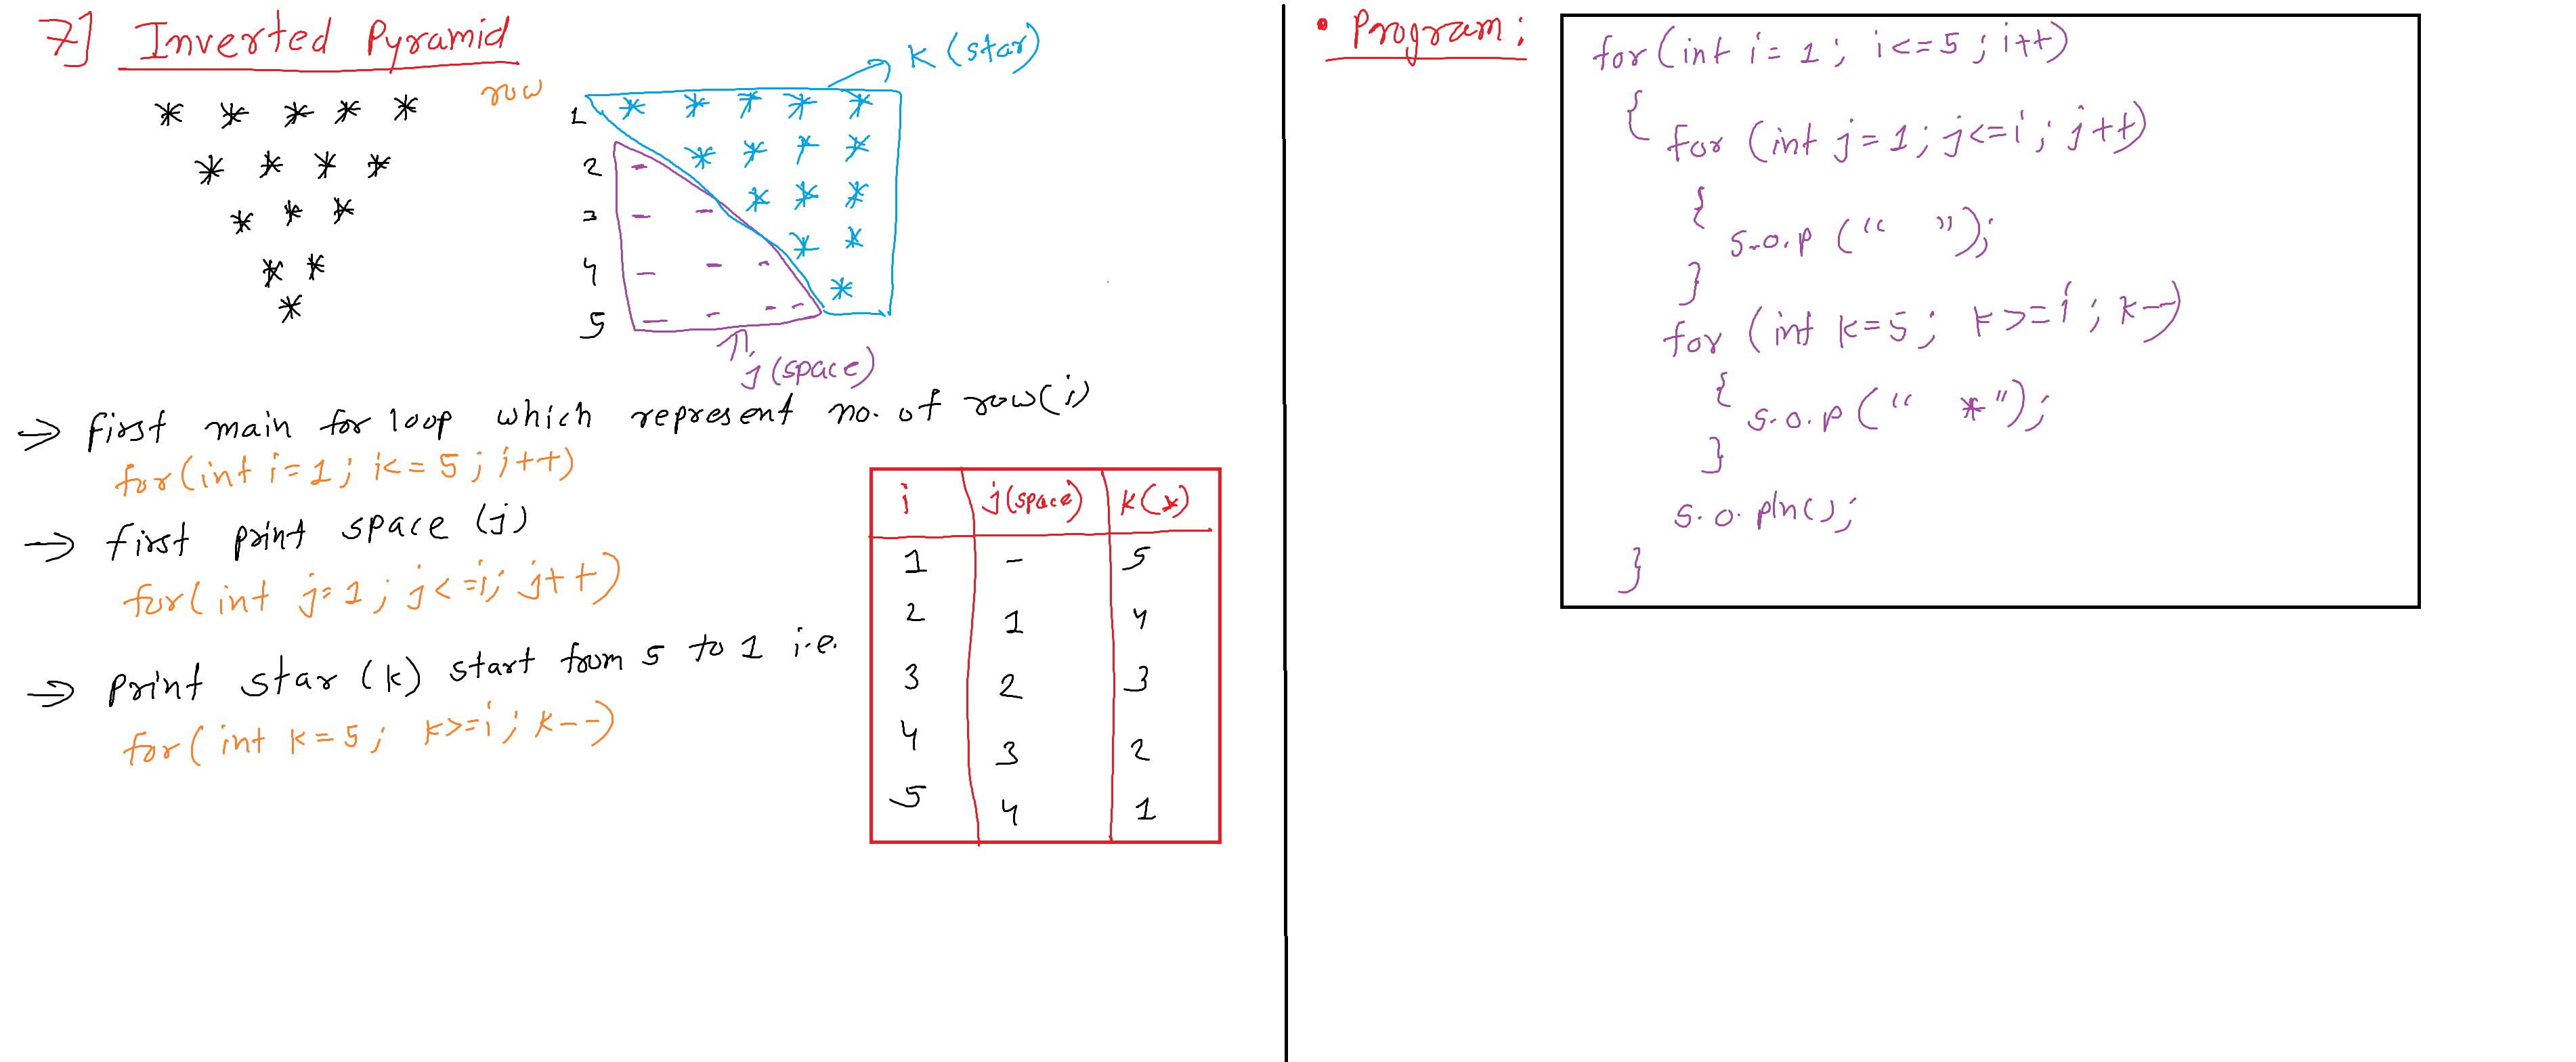 7] Inverted Pyramid
* * * * *
* * * *
* * *
* *
*
row
K (star)
1 * * * * *
2 - * * * *
3 - - * * *
4 - - - * *
5 - - - - *
j (space)
→ first main for loop which represent no. of row(i)
for(int i=1; i<=5; i++)
→ first print space (j)
for(int j=1; j<=i; j++)
→ print star (k) start from 5 to 1 i.e.
for(int k=5; k>=i; k--)
i j(space) k(*)
1 - 5
2 1 4
3 2 3
4 3 2
5 4 1
• Program:
for(int i=1; i<=5; i++)
{ for (int j=1; j<=i; j++)
{
S.o.p (" ");
}
for (int k=5; k>=i; k--)
{
s.o.p (" *");
}
s.o.pln();
}